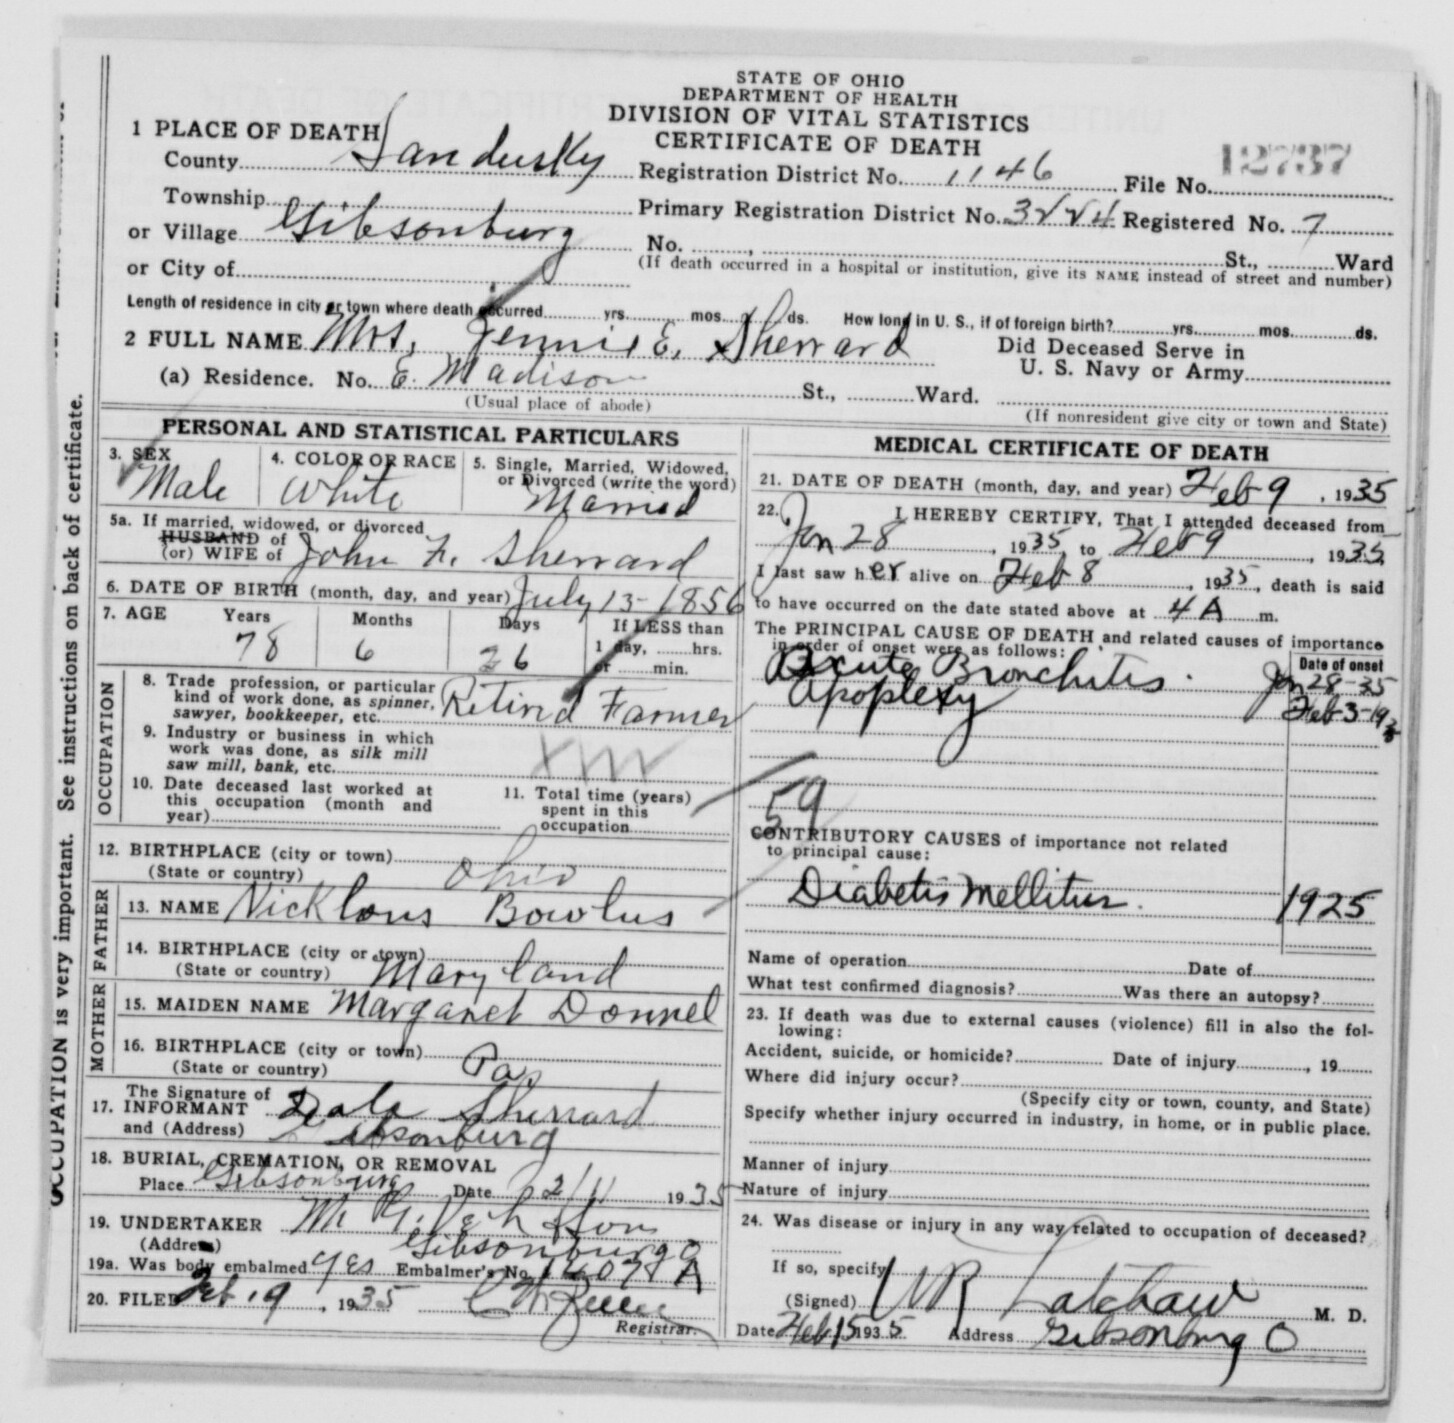 STATE OF OHIO
DEPARTMENT OF HEALTH
DIVISION OF VITAL STATISTICS
CERTIFICATE OF DEATH
1 PLACE OF DEATH
County Sandusky Registration District No. 1146 File No. 12737
Township Primary Registration District No. 3224 Registered No. 7
or Village Gibsonburg No. , St., Ward
or City of (If death occurred in a hospital or institution, give its NAME instead of street and number)
Length of residence in city or town where death occurred yrs. mos. ds. How long in U. S., if of foreign birth? yrs. mos. ds.
2 FULL NAME Mrs. Jennie E. Sherrard Did Deceased Serve in
U. S. Navy or Army
(a) Residence. No. E. Madison St., Ward.
(Usual place of abode) (If nonresident give city or town and State)
PERSONAL AND STATISTICAL PARTICULARS
3. SEX 4. COLOR OR RACE 5. Single, Married, Widowed,
or Divorced (write the word)
Male White Married
5a. If married, widowed, or divorced
HUSBAND of
(or) WIFE of John F. Sherrard
6. DATE OF BIRTH (month, day, and year) July 13-1856
7. AGE Years Months Days If LESS than
1 day, hrs.
or min.
78 6 26
OCCUPATION
8. Trade profession, or particular
kind of work done, as spinner,
sawyer, bookkeeper, etc. Retired Farmer
9. Industry or business in which
work was done, as silk mill
saw mill, bank, etc.
10. Date deceased last worked at
this occupation (month and
year)
11. Total time (years)
spent in this
occupation
12. BIRTHPLACE (city or town)
(State or country) Ohio
FATHER
13. NAME Nicklous Bowlus
14. BIRTHPLACE (city or town)
(State or country) Maryland
MOTHER
15. MAIDEN NAME Margaret Donnel
16. BIRTHPLACE (city or town)
(State or country) Pa
The Signature of
17. INFORMANT Dale Sherrard
and (Address) Gibsonburg
18. BURIAL, CREMATION, OR REMOVAL
Place Gibsonburg Date 2/11 1935
19. UNDERTAKER
(Address) Gibsonburg O
19a. Was body embalmed yes Embalmer's No. A
20. FILED Feb. 9, 1935
Registrar.
MEDICAL CERTIFICATE OF DEATH
21. DATE OF DEATH (month, day, and year) Feb 9, 1935
22. I HEREBY CERTIFY, That I attended deceased from
Jan 28, 1935, to Feb 9, 1935
I last saw her alive on Feb 8, 1935, death is said
to have occurred on the date stated above at 4 A m.
The PRINCIPAL CAUSE OF DEATH and related causes of importance
in order of onset were as follows:
Date of onset
Acute Bronchitis. Jan 28-35
Apoplexy Feb-3-1935
59
CONTRIBUTORY CAUSES of importance not related
to principal cause:
Diabetis Mellitus. 1925
Name of operation Date of
What test confirmed diagnosis? Was there an autopsy?
23. If death was due to external causes (violence) fill in also the fol-
lowing:
Accident, suicide, or homicide? Date of injury , 19
Where did injury occur?
(Specify city or town, county, and State)
Specify whether injury occurred in industry, in home, or in public place.
Manner of injury
Nature of injury
24. Was disease or injury in any way related to occupation of deceased?
If so, specify
(Signed) Latchaw M. D.
Date Feb 15 1935 Address Gibsonburg O
OCCUPATION is very important. See instructions on back of certificate.